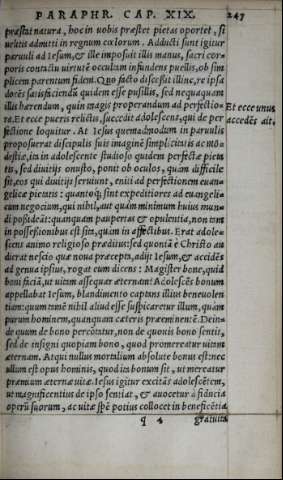 PARAPHR. CAP. XIX. 247
præstat natura, hoc in vobis præstet pietas oportet, si
velitis admitti in regnum cælorum. Adducti sunt igitur
paruuli ad Iesum, & ille impositis illis manus, sacri cor-
poris contactu virtutē occultam infundens puellis, ob sim
plicem parentum fidem. Quo facto discessit illinc, re ipsa
docēs satisficiendū quidem esse pusillis, sed nequaquam
illis hærendum, quin magis properandum ad perfectio-
ra. Et ecce pueris relictis, succedit adolescens, qui de per
fectione loquitur. At Iesus quemadmodum in paruulis
proposuerat discipulis suis imaginē simplicitatis ac mo
destiæ, ita in adolescente studioso quidem perfectæ pieta
tis, sed diuitijs onusto, ponit ob oculos, quàm difficile
sit, eos qui diuitijs seruiunt, eniti ad perfectionem euan-
gelicæ pietatis: quantoq́; sint expeditiores ad euangeli-
cum negocium, qui nihil, aut quàm minimum huius mun
di possideāt: quanquam paupertas & opulentia, non tam
in possessionibus est sita, quàm in affectibus. Erat adole-
scens animo religioso præditus: sed quoniā è Christo au
dierat nescio quæ noua præcepta, adijt Iesum, & accidēs
ad genua ipsius, rogat eum dicens: Magister bone, quid
boni faciā, ut uitam assequar æternam? Adolescēs bonum
appellabat Iesum, blandimento captans illius beneuolen
tiam: quum tamē nihil aliud esse suspicaretur illum, quàm
purum hominem, quanquam cæteris præeminētē. Dein-
de quum de bono percōtatur, non de quouis bono sentit,
sed de insigni quopiam bono, quod promereatur uitam
æternam. Atqui nullus mortalium absolute bonus est: nec
ullum est opus hominis, quod ita bonum sit, ut mereatur
præmium æternæ uitæ. Iesus igitur excitās adolescētem,
ut magnificentius de ipso sentiat, & auocet à fiducia
operū suorum, ac uitæ spē potius collocet in beneficētia
q 4 gratuita
Et ecce unus
accedēs ait.